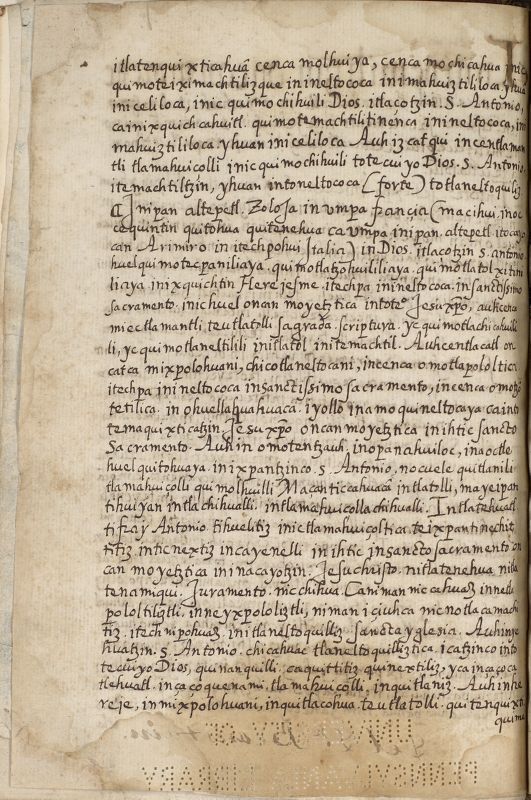 itlatenquixticahuā cenca molhuiya, cenca mochicahua inic
quimoteiximachtilizque in ineltococa in imahuiztililoca, yhuā
iniceliloca, inic quimochihuili Dios. itlacotzin. S. Antonio,
ca in ixquich cahuitl. quimotemachtilitinenca in ineltococa, in
mahuiztililoca. yhuan iniceliloca Auh iz catqui incentlaman
tli tlamahuicolli inic quimochihuili totecuiyo Dios. S. Antonio
itemachtiltzin, yhuan intoneltococa (forte) totlaneltoquiliz
Inipan altepetl. Zolosa in umpa francia (macihui. in oc
cequintin quitohua quitenehua ca umpa inipan. altepetl itoca
can Arimiro in itechpohui Italia) in Dios. itlacotzin S. Antonio
huel quimotecpaniliaya. quimotlatzohuililiaya. quimotlatolxitini
liaya inixquichtin Hererejesme. itechpa in ineltococa. in sanctissimo
sacramento. inic huel oncan moyetztica intoteº Jesuxpō, auh cenca
miectlamantli teutlatolli sagrada. scriptura. yc quimotlachicahuili
li, yc quimotlaneltilili initlatol initemachtil. Auh centlacatl on
catca mixpolohuani, chicotlaneltocani, incenca omotlapololtica
itechpa in ineltococa insanctissimo sacramento, incenca omotzo
tentlica. in ohuellahuahuaca. iyollo inamo quineltocaya ca in to
temaquixticatzin. Jesuxpō oncan moyetztica inihtic sancto
Sacramento. Auh in omotentzauh. inopanahuiloc, inaoctle
huel quitohuaya. in ixpantzinco. S. Antonio, nocuele quitlanili
tlamahuicolli quimolhuilli Macanticcahuacā intlatolli, mayeipan
tihuiyan intlachihualli. intlamahuicollachihualli. Intlatehuatl
tifray Antonio. tihuelitiz inic tlamahuicoltica. teixpantinechit
titiz. intic nextiz incayenelli in ihtic insancto sacramento on
can moyetztica in inacayotzin. Jesuchristo. nitlatenehua niha
tenamiqui. Juramento. nicchihua. Caniman niccahuaz innetla
pololtiliztli. inneyxpololiztli, niman içiuhca nicnotlacamachi
tiz. itech nipohuaz. initlaneltoquilliz sancta yglesia. Auh in ye
huatzin. S. Antonio. chicahuac tlaneltoquilliztica icatzinco into
tecuiyo Dios, quinanquilli. caquittitiz quinextiliz, yca inçaçoca
tlehuatl. inçaçoquenami. tlamahuicolli, inquitlaniz. Auh inhe
reje, inmixpolohuani, inquitlacohua. teutlatolli. quitenquixti
quimo
PENNSYLVANIA LIBRARY